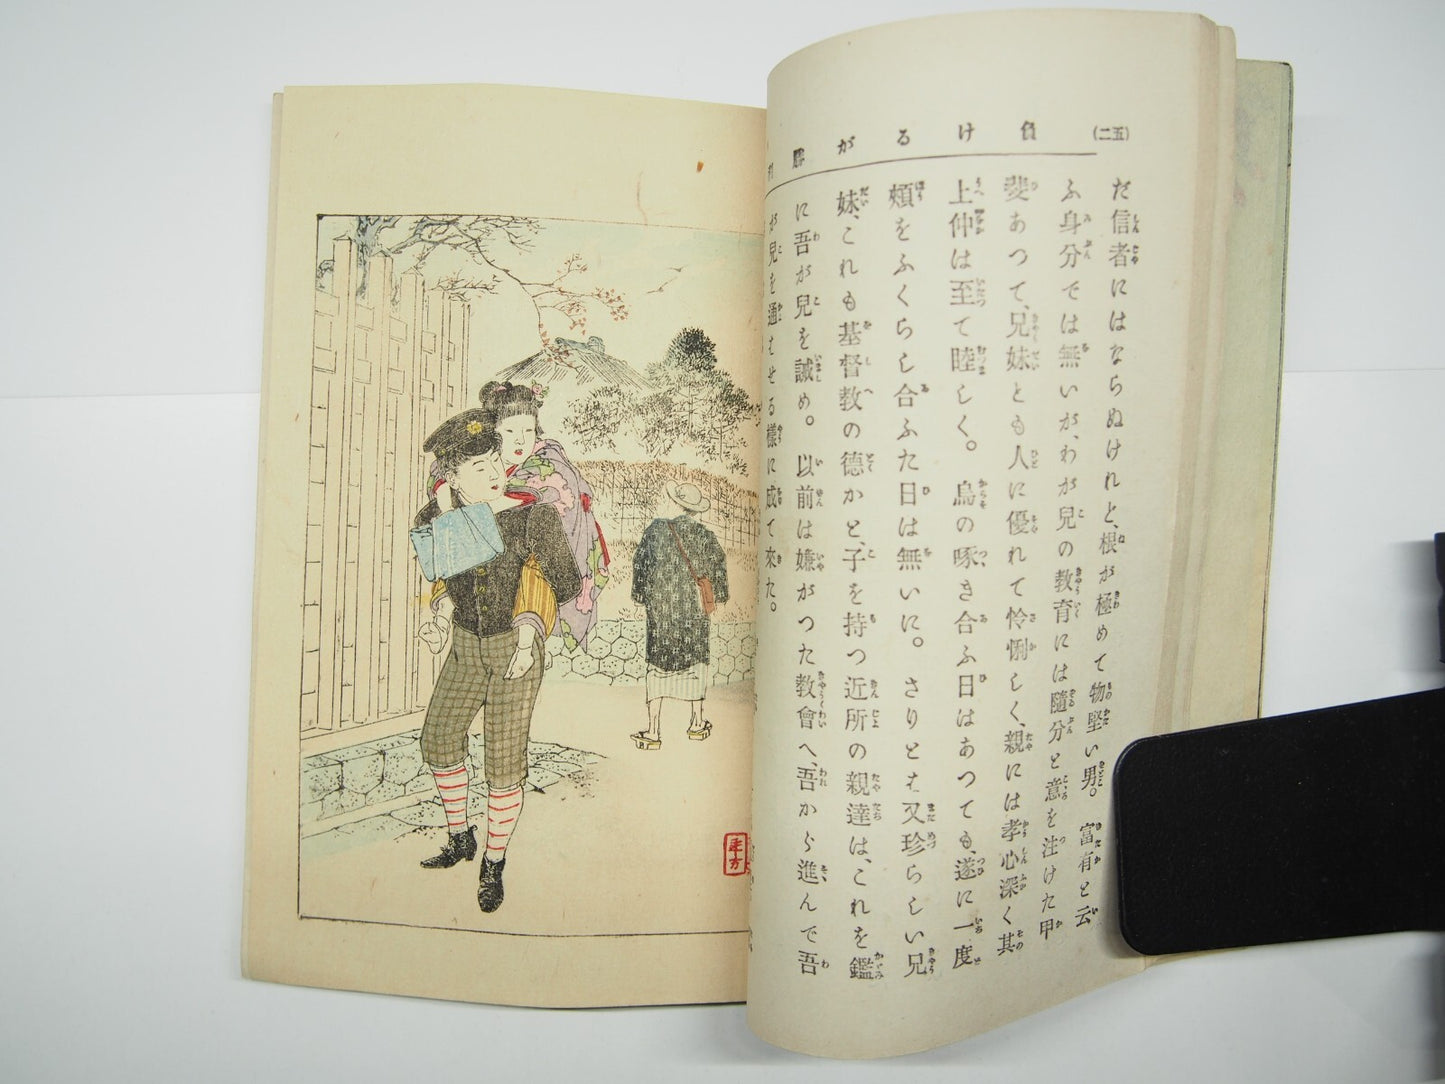 負けるが勝
(五二)
だ信者にはならぬけれど、根が極めて物堅い男。富有と云
ふ身分では無いが、わが兒の教育には隨分と意を注けた甲
斐あつて、兄妹とも人に優れて怜悧しく、親には孝心深く其
上仲は至て睦しく。烏の啄き合ふ日はあつても、遂に一度
頰をふくらし合ふた日は無いに。さりとは又珍らしい兄
妹、これも基督敎の德かと、子を持つ近所の親達は、これを鑑
に吾が兒を誡め。以前は嫌がつた敎會へ、吾から進んで吾
が兒を通はせる樣に成て來た。
年方